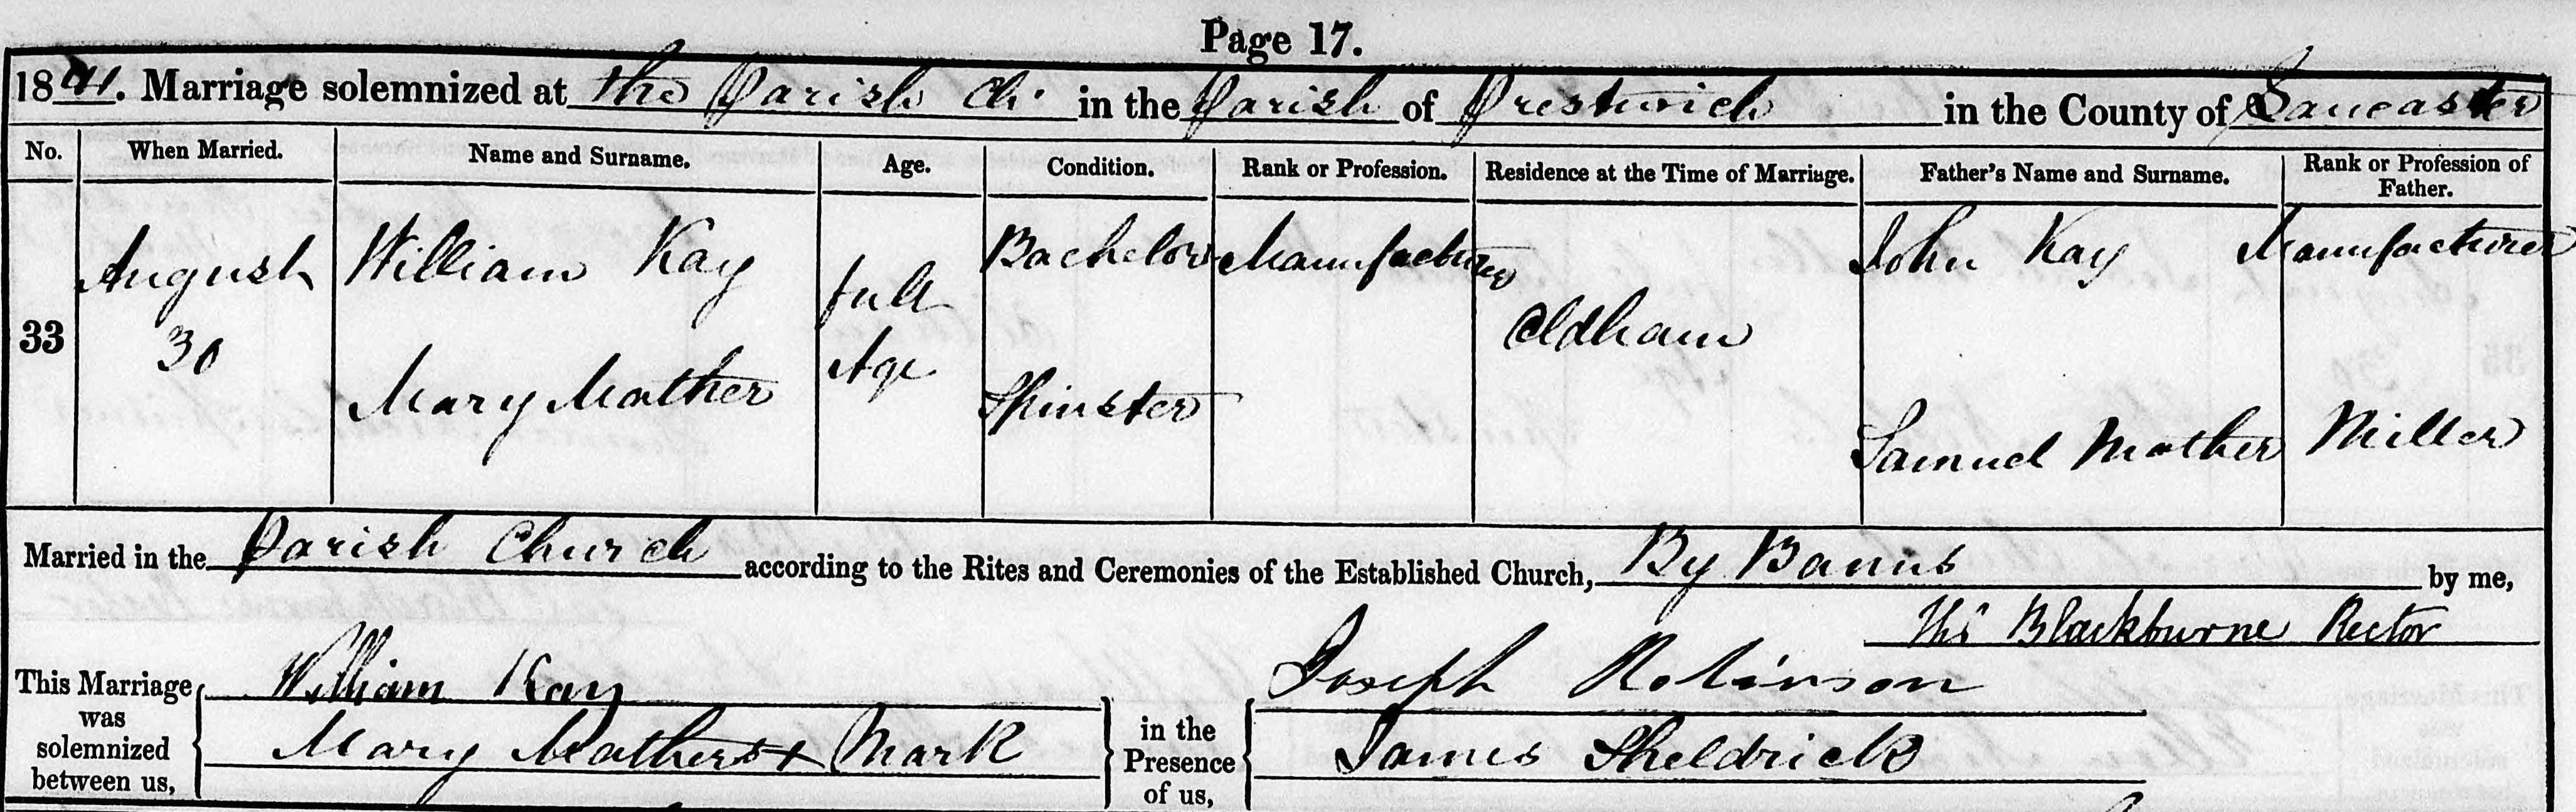 Page 17.
1841. Marriage solemnized at the Parish Ch. in the Parish of Prestwich in the County of Lancaster
No. When Married. Name and Surname. Age. Condition. Rank or Profession. Residence at the Time of Marriage. Father's Name and Surname. Rank or Profession of Father.
33 August 30 William Kay full Age Bachelor Manufacturer Oldham John Kay Manufacturer
Mary Mather Spinster Samuel Mather Miller
Married in the Parish Church according to the Rites and Ceremonies of the Established Church, By Banns by me,
Ths Blackburne Rector
This Marriage was solemnized between us, William Kay in the Presence of us, Joseph Robinson
Mary Mathers x Mark James Sheldrick